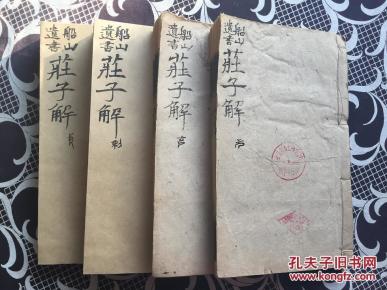 船山
遺書
莊子解
船山
遺書
莊子解
利
船山
遺書
莊子解
亨
船山
遺書
莊子解
孔夫子旧书网